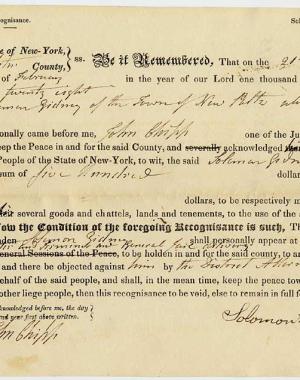 ognisance.
e of New-York,
County, ss. Be it Remembered, That on the 21
of February in the year of our Lord one thousand
twenty eight
Gidney of the Town of New Paltz
onally came before me, John Chipp one of the Ju
keep the Peace in and for the said County, and severally acknowledged
People of the State of New-York, to wit, the said Soloman Gidn
um of five Hundred
dollars, to be respectively m
their several goods and chattels, lands and tenements, to the use of the
ow the Condition of the foregoing Recognisance is such, T
den Solomon Gidney shall personally appear at
and Terminer and General Jail Delivery
General Sessions of the Peace, to be holden in and for said county, to an
and there be objected against him by the District Attorn
behalf of the said people, and shall, in the mean time, keep the peace tow
other liege people, then this recognisance to be void, else to remain in full fo
cknowledged before me, the day
and year first above written.
Solomon
John Chipp